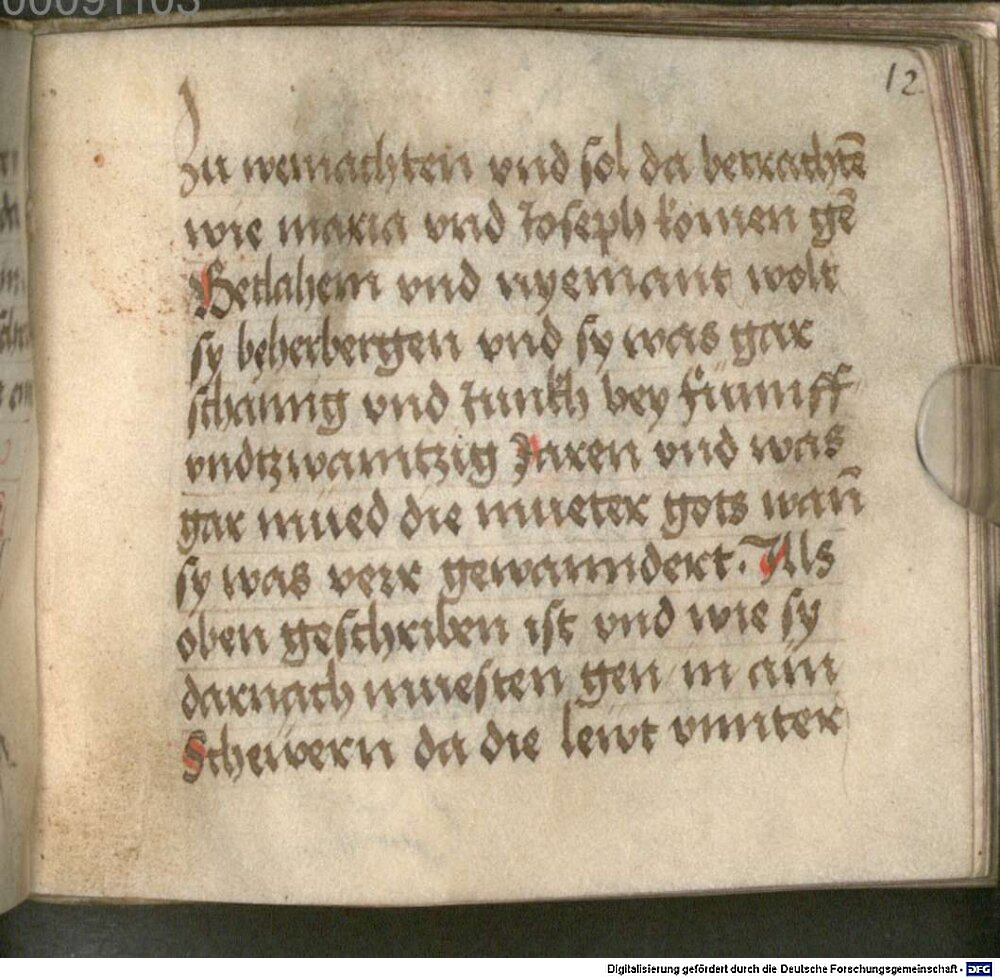 00091103
12
Zu weinachten vnd sol da betrachtē
wie maria vnd Joseph komen gē
Betlahem vnd nyemant wolt
sy beherbergen vnd sy was gar
schannig vnd Junkh bey fůnnff
vndtzwaintzig Jaren vnd was
gar mued die mueter gots wan̄
sy was verr gewanndert. Als
oben geschriben ist vnd wie sy
darnach muesten gen in ain
Schewern da die lewt vnnter
Digitalisierung gefördert durch die Deutsche Forschungsgemeinschaft - DFG